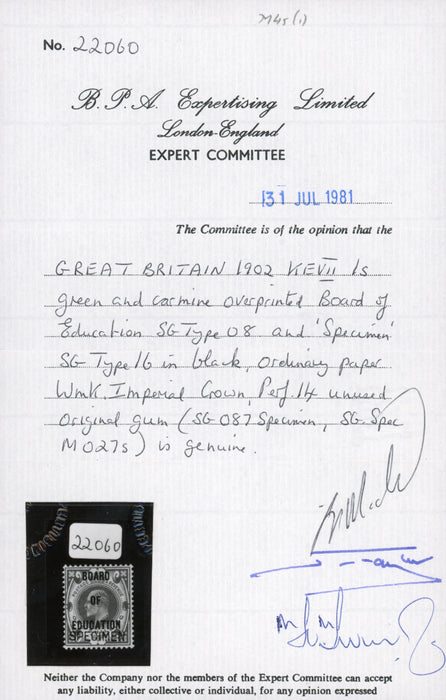 M45(1)
No. 22060
B. P. A. Expertising Limited
London-England
EXPERT COMMITTEE
31 JUL 1981
The Committee is of the opinion that the
GREAT BRITAIN 1902 KEVII 1s
green and carmine overprinted Board of
Education SG Type 08 and 'Specimen'
SG Type 16 in black, ordinary paper
Wmk. Imperial Crown, Perf. 14 unused
original gum (SG 087 Specimen, SG. Spec
M027s) is genuine.
22060
BOARD
OF
EDUCATION
SPECIMEN
Neither the Company nor the members of the Expert Committee can accept
any liability, either collective or individual, for any opinion expressed